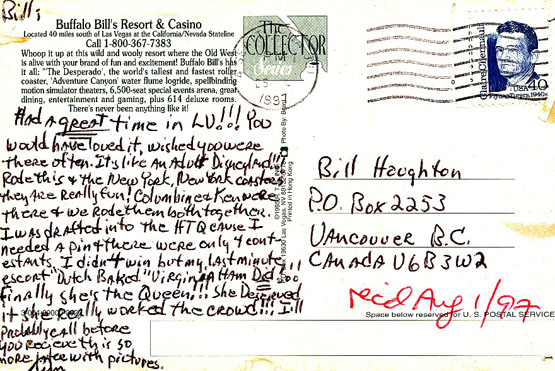 Bill;
Buffalo Bill's Resort & Casino
Located 40 miles south of Las Vegas at the California/Nevada Stateline
Call 1-800-367-7383
Whoop it up at this wild and wooly resort where the Old West
is alive with your brand of fun and excitement! Buffalo Bill's has
it all: "The Desperado', the world's tallest and fastest roller
coaster, 'Adventure Canyon' water flume logride, spellbinding
motion simulator theaters, 6,500-seat special events arena, great
dining, entertainment and gaming, plus 614 deluxe rooms.
There's never been anything like it!
Had a great time in LV!!! You
would have loved it, wished you were
there often. Its like an Adult Disneyland!!!
Rode this & the New York, New York coasters
they are Really fun! Columbine & Ken were
there & we Rode them both together.
I was drafted into the HTQ cause I
needed a pin & there were only 4 cont-
estants. I didn't win but my last minute
escort "Dutch Baked" Virginia Ham Did!!!
Finally she's the Queen!!! She Deserved
it she Really worked the crowd!!! I'll
probably call before
you recieve this so
more later with pictures.
THE
COLLECTOR
Series
1997
Claire Chennault
USA 40
Flying Tigers, 1940s
Photo By:
Las Vegas, NV
Printed in Hong Kong
Bill Houghton
P.O. Box 2253
Vancouver B.C.
Canada V6B3W2
rec'd Aug 1/97
Space below reserved for U. S. POSTAL SERVICE